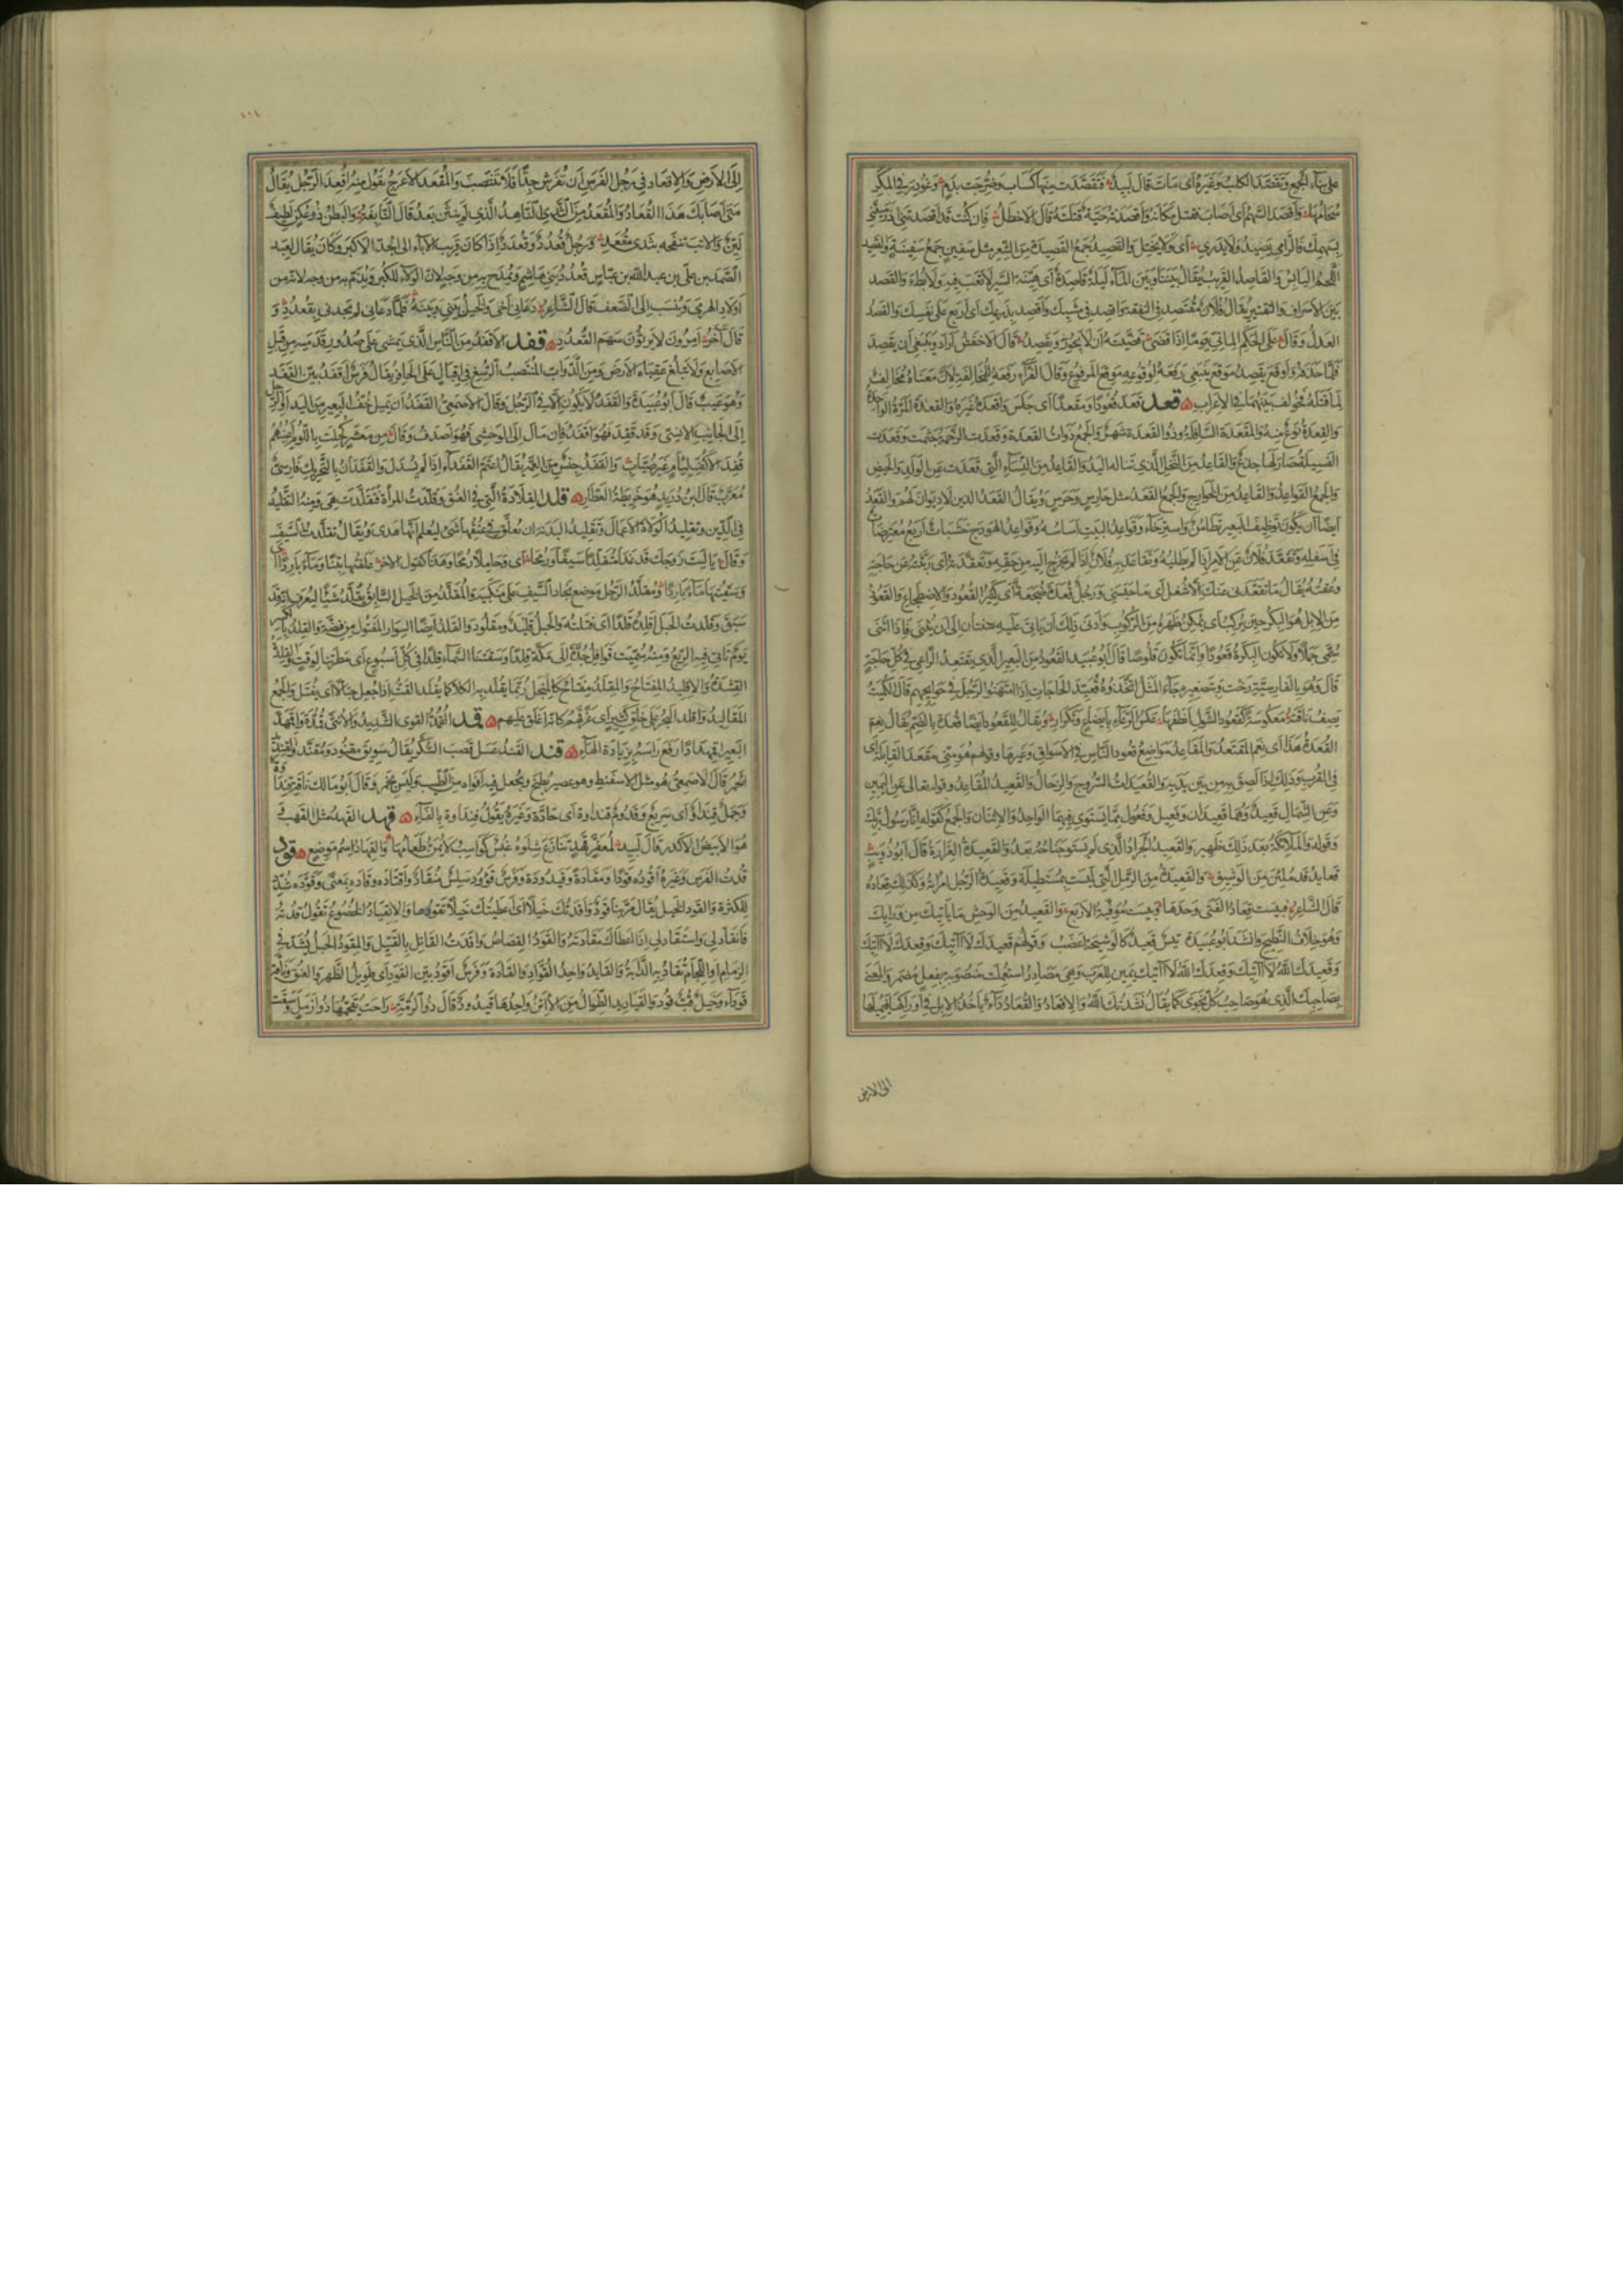 على بناء الجمع وتقصد الكلب وغيره أى مات قال لبيد فتقصدت منها كساب وضرجت بدم وغودر فى المكر
سحامها وأقصد السهم أى أصاب فقتل مكانه وأقصدته حية قتلته قال الاخطل فان كنت قد أقصدتنى اذ رميتنى
بسهمك فالرامى يصيد ولا يدرى أى ولا يختل والقصيد جمع القصيدة من الشعر مثل سفين جمع سفينة والقصيد
اللحم اليابس والقاصد القريب يقال بيننا وبين الماء ليلة قاصدة أى هينة السير لا تعب فيه ولا بطء والقصد
بين الاسراف والتقتير يقال فلان مقتصد فى النفقة واقصد فى مشيك واقصد بذرعك أى اربع على نفسك والقصد
العدل وقال على الحكم المأتى يوما اذا قضى قضيته أن لا يجور ويقصد قال الاخفش أراد وينبغى أن يقصد
فلما حذفه وأوقع يقصد موقع ينبغى رفعه لوقوعه موقع المرفوع وقال الفراء رفعه للمخالفة لأن معناه مخالف
لما قبله فخولف بينهما فى الاعراب قعد قعد قعودا ومقعدا أى جلس وأقعده غيره والقعدة المرة الواحدة
والقعدة نوع منه والمقعدة السافلة وذو القعدة شهر والجمع ذوات القعدة وقعدت الرخمة جثمت وقعدت
الفسيلة صار لها جذع والقاعد من النخل الذى تناله اليد والقاعد من النساء التى قعدت عن الولد والحيض
والجمع القواعد والقاعد من الخوارج والجمع القعد مثل حارس وحرس ويقال القعد الذين لا ديوان لهم والقعد
أيضا أن يكون بوظيف البعير تطامن واسترخاء وقواعد البيت أساسه وقواعد الهودج خشبات أربع معترضات
فى أسفله وتقعد فلان عن الامر اذا لم يطلبه وتقاعد به فلان اذا لم يخرج اليه من حقه وتقعدته أى ربثته عن حاجته
وعقته يقال ما تقعدنى عنك الا شغل أى ما حبسنى ورجل قعدة ضجعة أى كثير القعود والاضطجاع والقعود
من الابل هو البكر حين يركب أى يمكن ظهره من الركوب وأدنى ذلك أن يأتى عليه سنتان الى أن يثنى فاذا أثنى
سمى جملا ولا تكون البكرة قعودا وانما تكون قلوصا قال أبو عبيد القعود من البعير الذى يقتعده الراعى فى كل حاجة
قال وهو بالفارسية رخت وبتصغيره جاء المثل اتخذوه قعيد الحاجات اذا امتهنوا الرجل فى حوائجهم قال الكميت
يصف ناقته معكوسة كقعود الشول أنطفها عكس الرعاء بايضاع وتكرار ويقال للقعود أيضا قعدة بالضم يقال نعم
القعدة هذا أى نعم المقتعد والمقاعد مواضع قعود الناس فى الاسواق وغيرها وقولهم هو منى مقعد القابلة أى
فى القرب وذلك اذا لصق به من بين يديه والقعيدات السروج والرحال والقعيد المقاعد وقوله تعالى عن اليمين
وعن الشمال قعيد وهما قعيدان وفعيل وفعول مما يستوى فيهما الواحد والاثنان والجمع كقوله إنا رسول ربك
وقوله والملائكة بعد ذلك ظهير والقعيد الجراد الذى لم يستو جناحه بعد والقعيدة الغرارة قال أبو ذؤيب
قعايد قد ملئن من الوشيق والقعيدة من الرمل التى ليست بمستطيلة وقعيدة الرجل امرأته وكذلك قعاده
قال الشاعر فبئست قعاد الفتى وحدها وبئست موفية الاربع والقعيد من الوحش ما يأتيك من ورائك
وهو خلاف النطيح وأنشد أبو عبيدة تيس قعيد كالوشيجة أعضب وقولهم قعيدك لا آتيك وقعدك لا آتيك
وقعيدك الله لا آتيك وقعدك الله لا آتيك يمين للعرب وهى مصادر استعملت منصوبة بفعل مضمر والمعنى
بصاحبك الذى هو صاحب كل نجوى كما يقال نشدتك الله والاقعاد والقعاد داء يأخذ الابل فى أوراكها فيميلها
الى الارض
١٠٤
الى الارض والاقعاد فى رجل الفرس أن تفرش جدا فلا تنتصب والمقعد الاعرج يقول منه أقعد الرجل يقال
متى أصابك هذا القعاد والمقعد من الثدى الناهد الذى لم ينثن بعد قال النابغة والبطن ذو عكن لطيف
لين والاتب تنفجه بثدى مقعد ورجل قعدد وقعدد اذا كان قريب الآباء الى الجد الاكبر وكان يقال لعبد
الصمد بن على بن عبد الله بن عباس قعدد بنى هاشم ويمدح به من وجه لان الولاء للكبر ويذم به من وجه لانه من
أولاد الهرمى وينسب الى الضعف قال الشاعر دعانى أخى والخيل بينى وبينه فلما دعانى لم يجدنى بقعدد و
قال آخر أمرون لا يرثون سهم القعدد قفد الاقفد من الناس الذى يمشى على صدور قدميه من قبل
الاصابع ولا تبلغ عقباه الارض ومن الدواب المنتصب الرسغ فى اقبال على الحافر يقال فرس أقفد بين القفد
وهو عيب قال أبو عبيدة والقفد لا يكون الا فى الرجل وقال الاصمعى القفد أن يميل خف البعير من اليد أو الرجل
الى الجانب الانسى وقد قفد فهو أقفد فان مال الى الوحشى فهو أصدف وقال من معشر كحلت باللؤم أعينهم
قفد الاكف لئام غير صياب والقفد جنس من العمة يقال اعتم القفداء اذا لم يسدل والقفدان بالتحريك فارسى
معرب قال ابن دريد هو خريطة العطار قلد القلادة التى فى العنق وقلدت المرأة فتقلدت هى ومنه التقليد
فى الدين وتقليد الولاة الاعمال وتقليد البدنة أن يعلق فى عنقها شىء ليعلم أنها هدى ويقال تقلدت السيف
وقال يا ليت زوجك قد غدا متقلدا سيفا ورمحا أى وحاملا رمحا وهذا كقول الآخر علفتها تبنا وماء باردا أى
وسقيتها ماء باردا ومقلد الرجل موضع نجاد السيف على منكبيه والمقلد من الخيل السابق يقلد شيئا ليعرف أنه قد
سبق وقلدت الحبل أقلده قلدا أى فتلته والحبل قليد ومقلود والقلد أيضا السوار المفتول من فضة والقلد بالكسر
يوم تأتى فيه الربع ومنه سميت قوافل جدة الى مكة قلدا وسقتنا السماء قلدا فى كل أسبوع أى مطرتنا لوقت والقلدة
القشدة والاقليد المفتاح والمقلد مفتاح كالمنجل ربما يقلد به الكلأ كما يقلد القت اذا جعل حبالا أى يفتل والجمع
المقاليد وأقلد البحر على خلق كثير أى غرقهم كأنه أغلق عليهم قمد القمد القوى الشديد والانثى قمدة واقمهد
البعير اقمهدادا رفع رأسه بزيادة الهاء قند القند عسل قصب السكر يقال سويق مقنود ومقند والقنديد
الخمر قال الاصمعى هو مثل الاسفنط وهو عصير يطبخ ويجعل فيه أفواه من الطيب وليس بخمر وقال أبو مالك ناقة قندأوة
وجمل قندأو أى سريع وقدوم قنداوة أى حادة وغيره يقول فنداوة بالفاء قهد القهد مثل القهب
هو الابيض الاكدر قال لبيد لمعفر قهد تنازع شلوه غبس كواسب لا يمن طعامها والقهاد اسم موضع قود
قدت الفرس وغيره أقوده قودا ومقادة وقيدودة وفرس قؤود سلس منقاد واقتاده وقاده بمعنى وقوده شدد
للكثرة والقود الخيل يقال مر بنا قود وأقدتك خيلا أى أعطيتك خيلا تقودها والانقياد الخضوع تقول قدته
فانقاد لى واستقاد لى اذا أعطاك مقادته والقود القصاص وأقدت القاتل بالقتيل والمقود الحبل يشد فى
الزمام أو اللجام تقاد به الدابة والقايد واحد القواد والقادة وفرس أقود بين القود أى طويل الظهر والعنق وناقة
قوداء وخيل قب قود والقياديد الطوال من الاتن واحدها قيدود قال ذو الرمة راحت يقحمها ذو أزمل وسقت